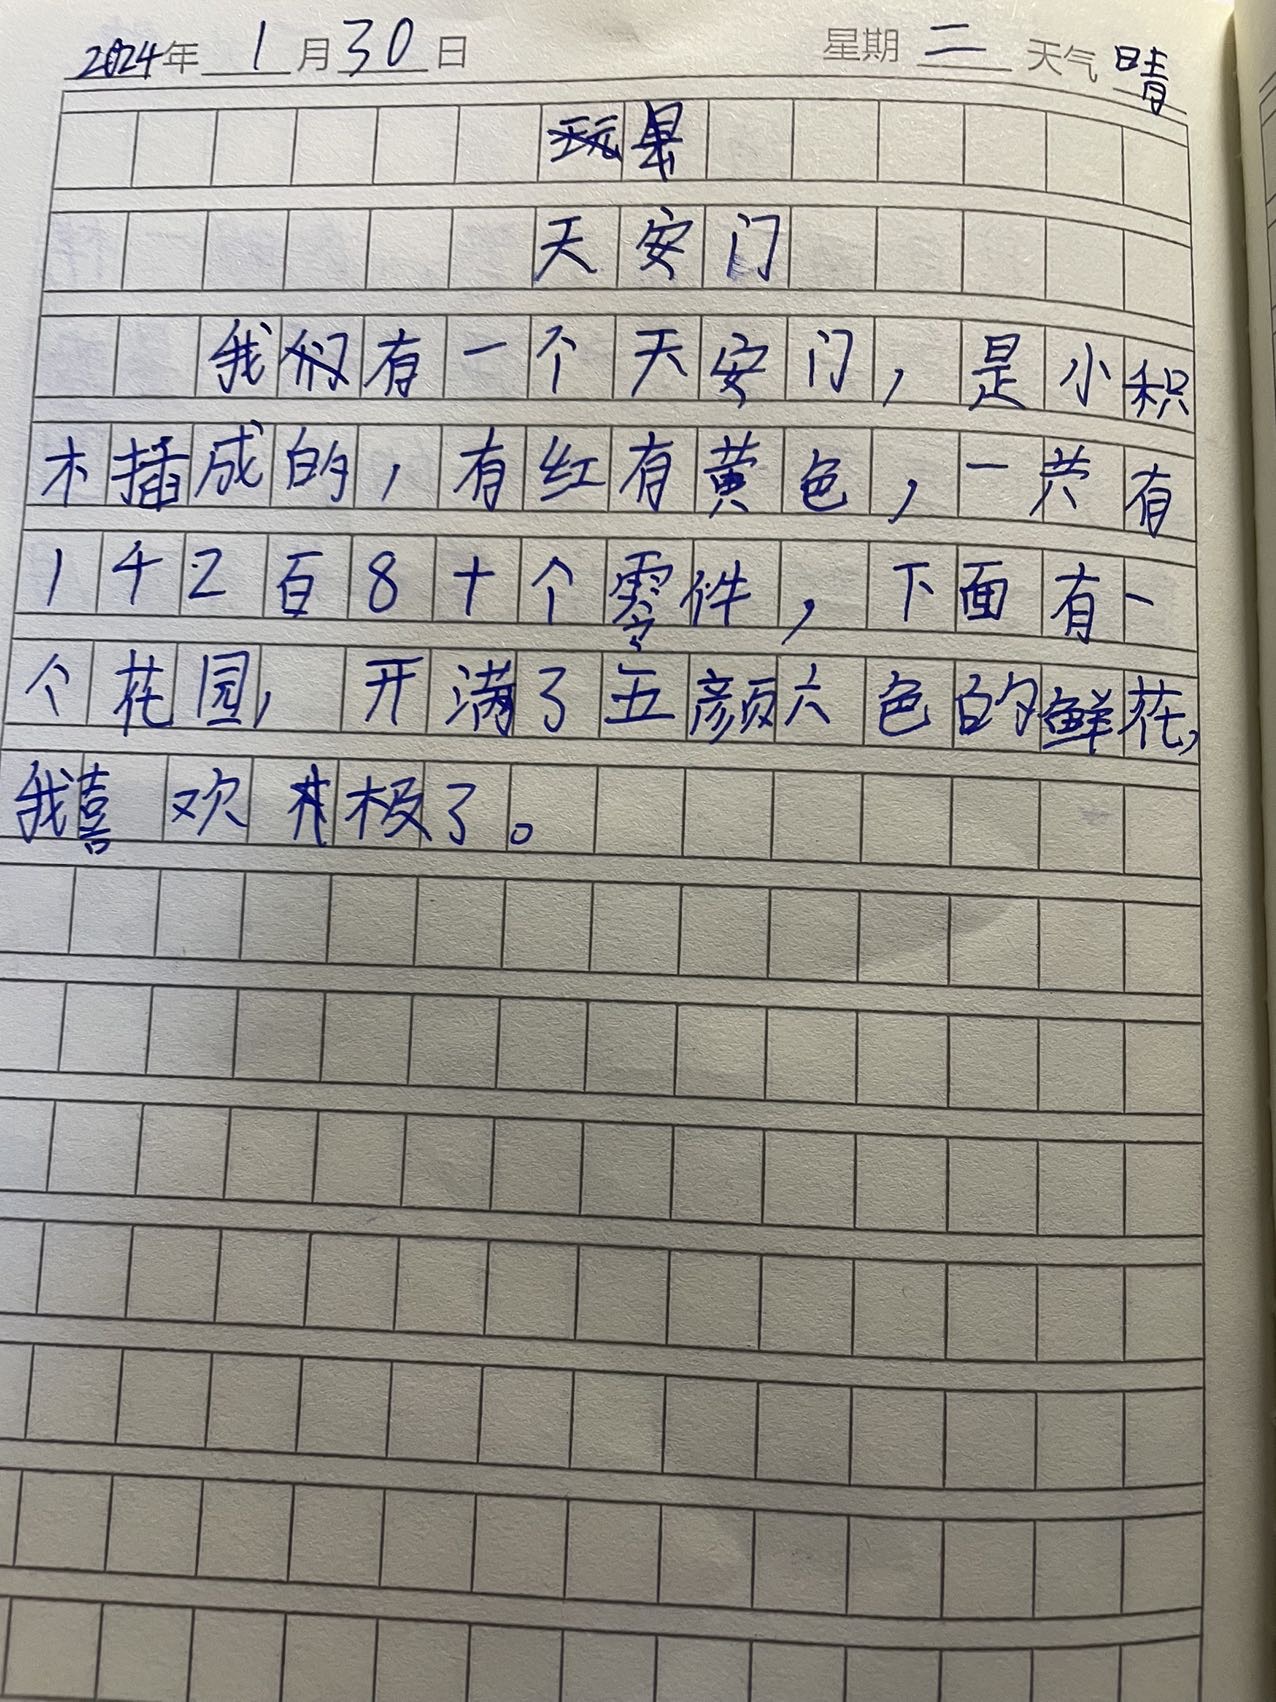 2024年1月30日 星期二 天气晴
天安门
我有一个天安门，是小积
木插成的，有红有黄色，一共有
142百8十个零件，下面有一
个花园，开满了五颜六色的鲜花，
我喜欢极了。